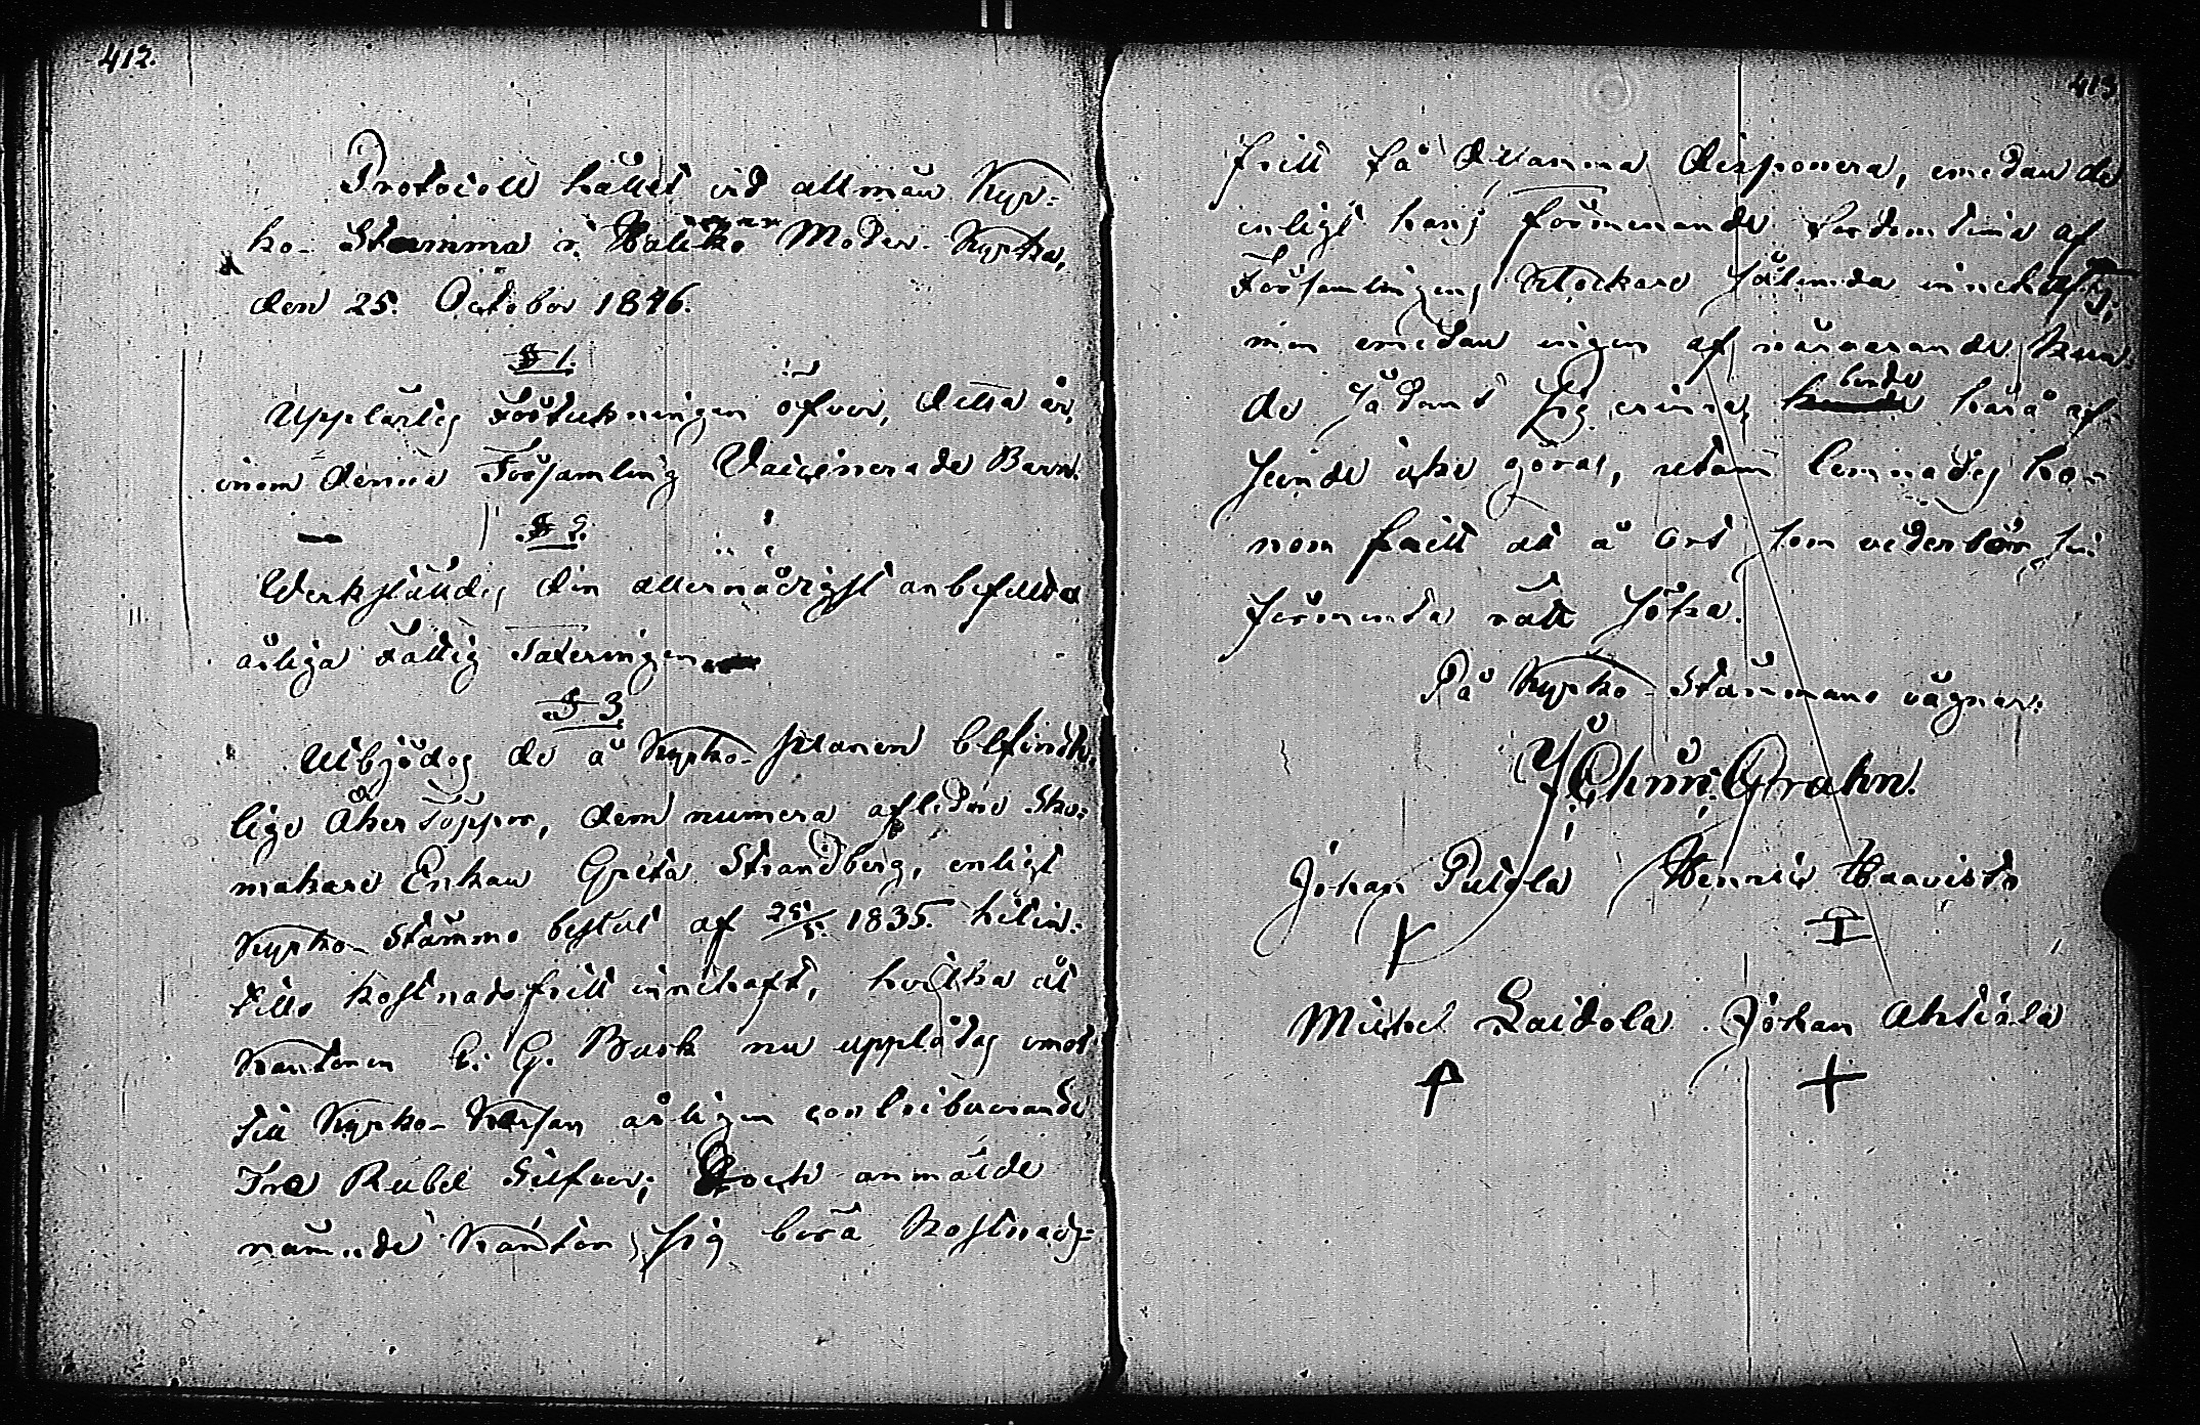 412.
Protocoll hållet vid allmän Kyr-
ko-Stämma i Halikko Moder-Kyrka,
den 25. October 1846.
§ 1.
Upplästes Förtekningen öfver, detta år,
inom denna Församling Vaccinerade Barn.
§ 2.
Werkställdes den allernådigst anbefallda
årliga Fattig Taxeringen
§ 3
Utbjödos de å Kyrko-
lige Åker Täppor, dem numera aflidne Sko-
makare Enkan Greta Strandberg, enligt
Kyrko-Stämmo beslut af 25/5. 1835. hitin-
tills kostnadsfritt innehaft, hvilka åt
Kantoren C. G. Back nu upplätos emot
till Kyrko-Kassan årligen contribuerande
Tre Rubel Silfver; Dock anmälde
nämnde Kantor sig böra kostnads-
413
fritt få desamma disponera, emedan de
enligt hans förmenande fordomtima af
Församlingens Klockare sålunda innehafts;
men emedan ingen af närvarande kun-
de sådant sig erinra, kunde borde härå af-
seende icke göras, utan lemnades ho-
nom fritt att å ort som vederbör sin
förmenta rätt söka.
På Kyrko-Stämmans vägnar:
Grahn.
Johan Putola Henric Haavisto
Michel Laidola. Johan Ahtiala